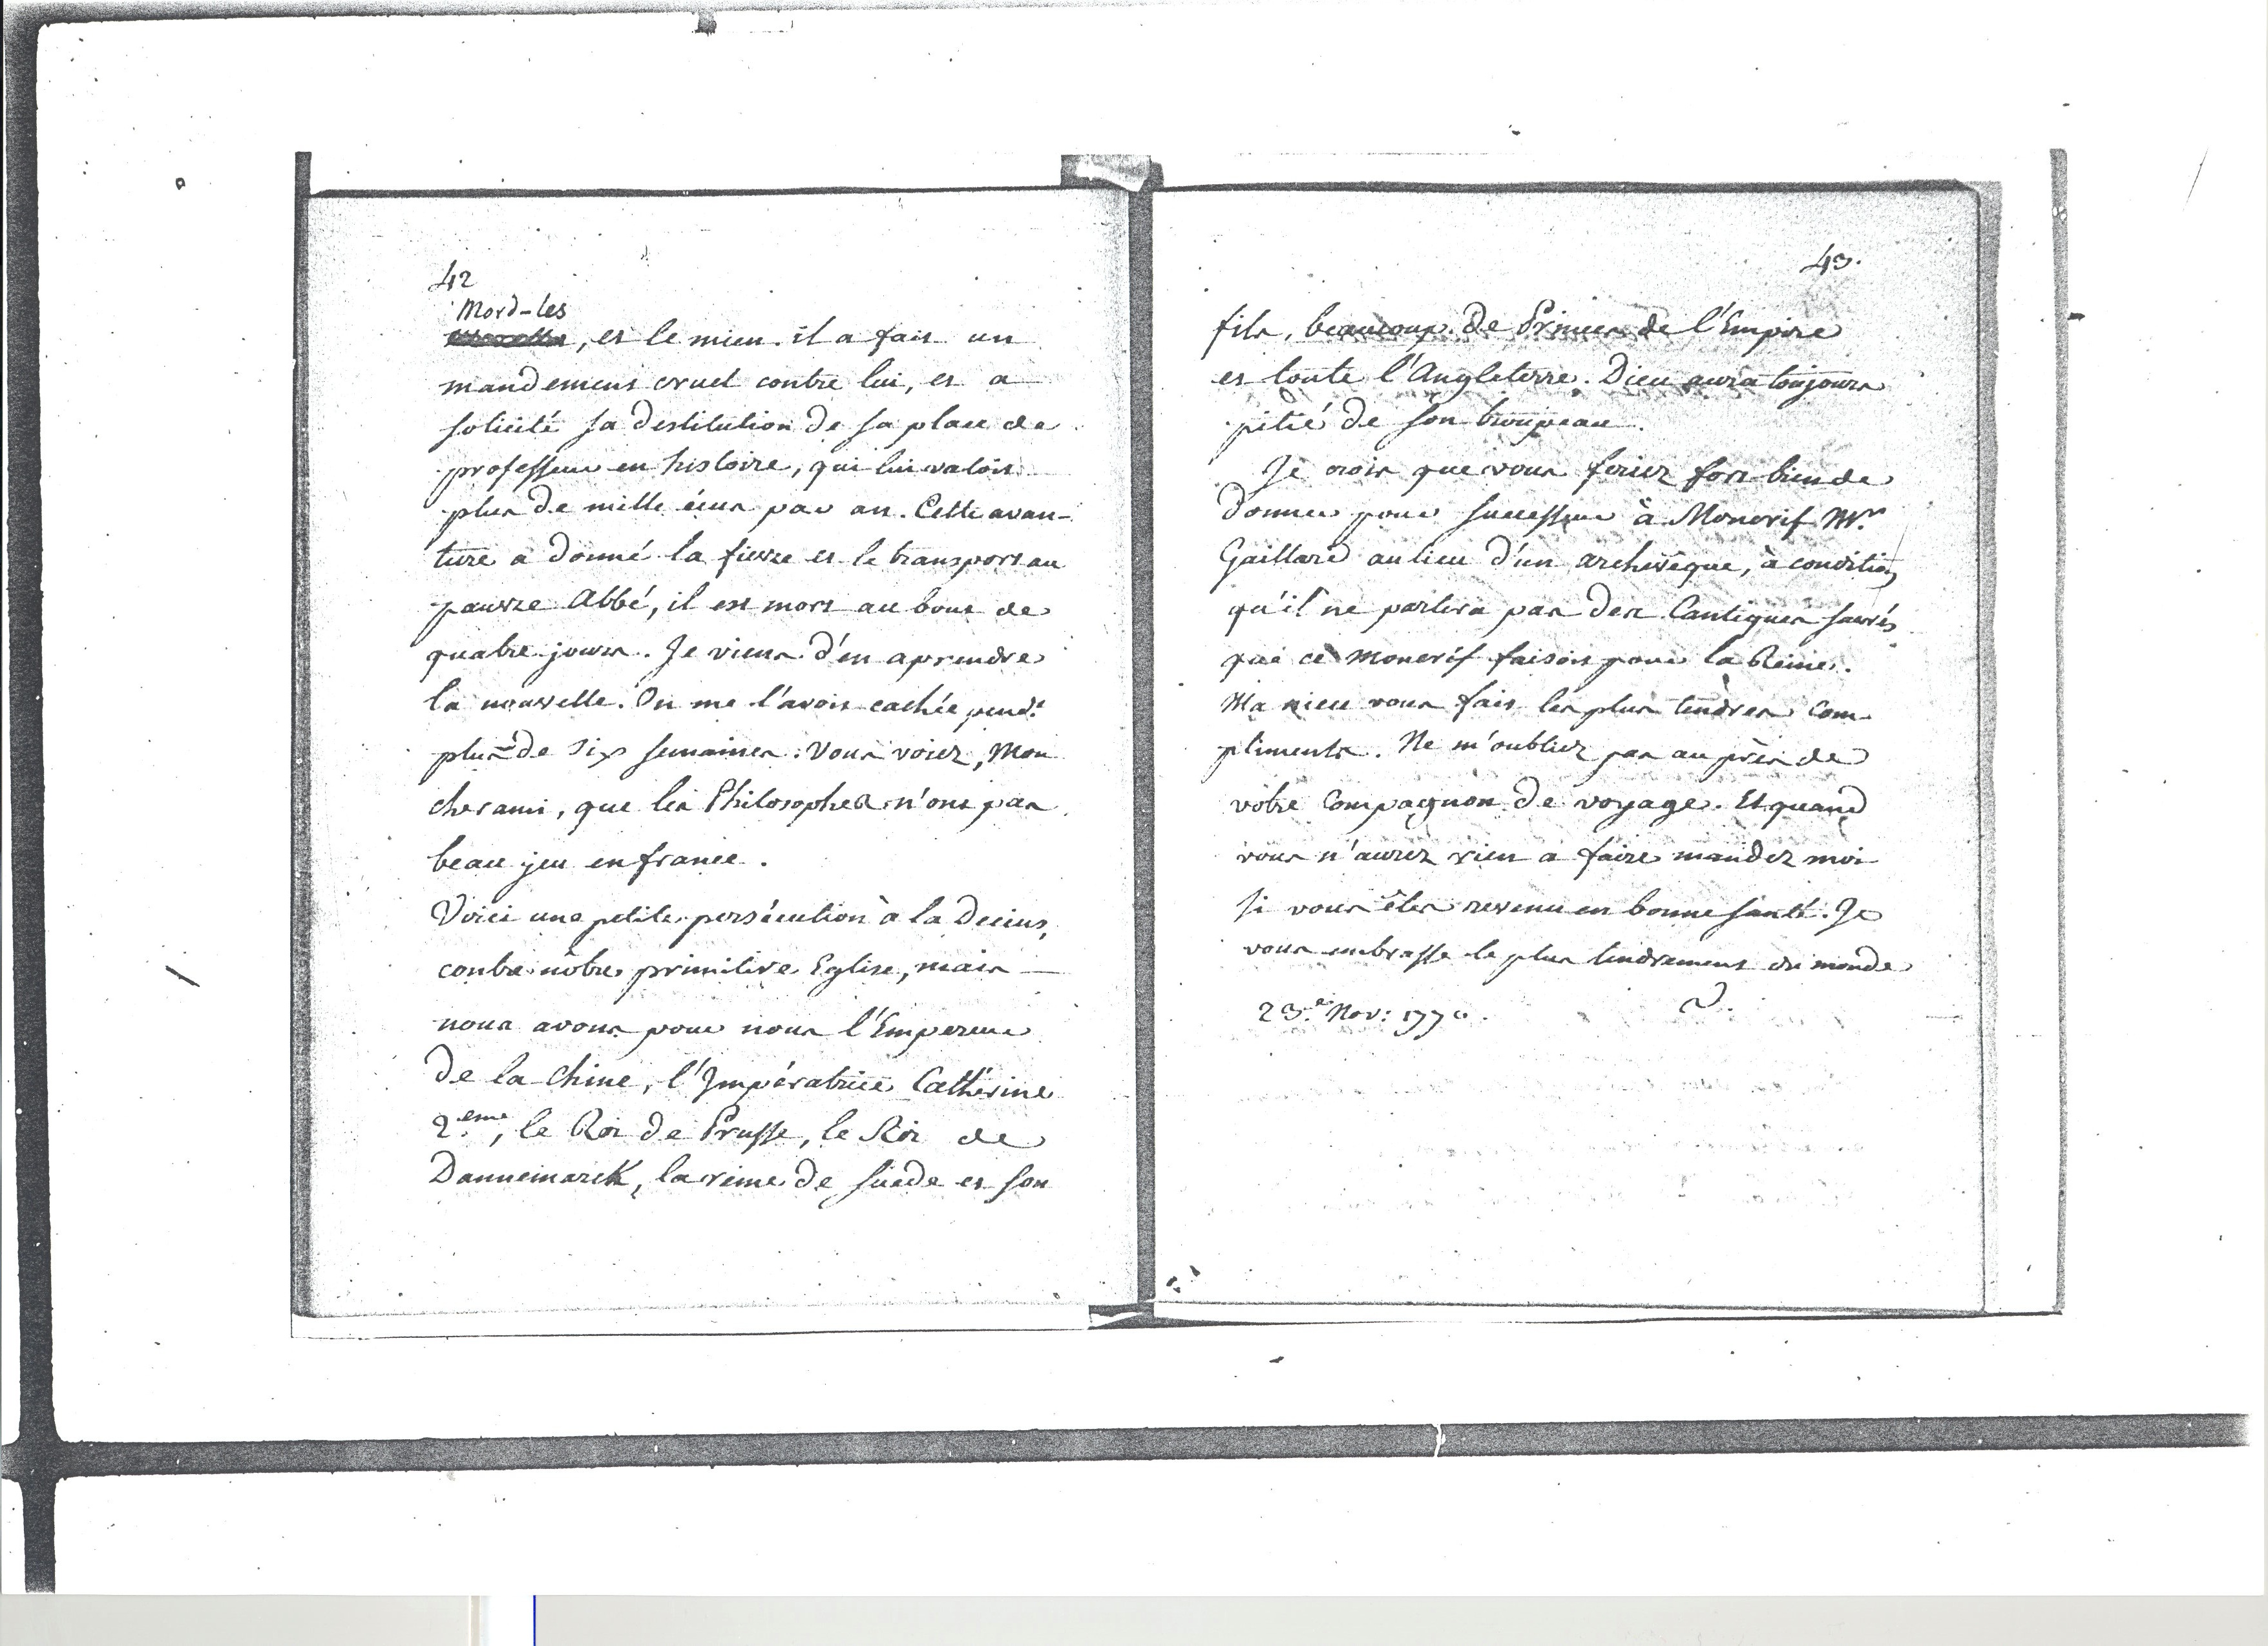 42
Mord-les
, et le mien. il a fait un
mandement cruel contre lui, et a
solicité sa destitution de sa place de
professeur en histoire, qui lui valoit
plus de mille écus par an. Cette avan-
ture a donné la fievre et le transport au
pauvre Abbé, il est mort au bout de
quatre jours. Je viens d'en aprendre
la nouvelle. On me l'avoit cachée pend.t
plus de six semaines. Vous voiez, Mon
cher ami, que les Philosophes n'ont pas
beau jeu en france.
Voici une petite persécution à la Decius,
contre nôtre primitive Eglise, mais
nous avons pour nous l'Empereur
de la Chine, l'Impératrice Cathérine
2.eme, le Roi de Prusse, le Roi de
Dannemarck, la reine de suède et son
43.
fils, beaucoup de Princes de l'Empire
et toute l'Angleterre. Dieu aura toujours
pitié de son troupeau.
Je crois que vous feriez fort bien de
donner pour successeur à Moncrif Mr.
Gaillard au lieu d'un archevêque, à condition
qu'il ne parlera pas des Cantiques sacrés
que ce Moncrif faisoit pour la Reine.
Ma niece vous fait les plus tendres com-
pliments. Ne m'oubliez pas au près de
vôtre Compagnon de voyage. Et quand
vous n'aurez rien à faire mandez moi
si vous êtes revenu en bonne santé. Je
vous embrasse le plus tendrement du monde
23.e Nov: 1770. V.